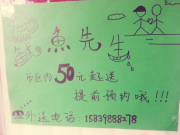 魚先生
市区内50元起送
提前预约哦!!!
外送电话:15837888278